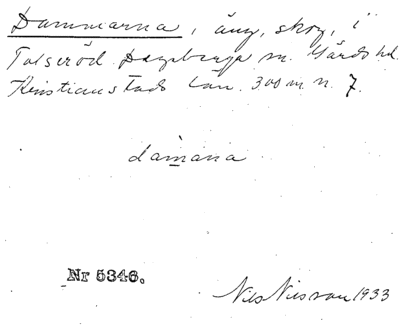 Dammarna, äng, skog, i
Tolseröd Degeberga sn. Gärds hd.
Kristianstads län. 300 m n. 7.
damana
Nr 5346.
Nils Nilsson 1933